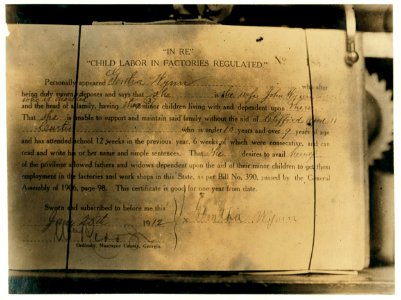 "IN RE"
"CHILD LABOR IN FACTORIES REGULATED."
No
Personally appeared Gentha Wynn who after
being duly sworn deposes and says that she is the wife John Wynn
and the head of a family, having minor children living with and dependent upon
That she is unable to support and maintain said family without the aid of Clifford and
Curtis who is under 10 years and over 9 years of age
and has attended school 12 weeks in the previous year, 6 weeks of which were consecutive, and can
read and write his or her name and simple sentences. That he desires to avail
of the privilege allowed fathers and widows dependent upon the aid of their minor children to get them
employment in the factories and work shops in this State, as per Bill No. 399, passed by the General
Assembly of 1906, page 98. This certificate is good for one year from date.
Sworn and subscribed to before me this
1912
x Gentha Wynn
Ordinary, Muscogee County, Georgia.